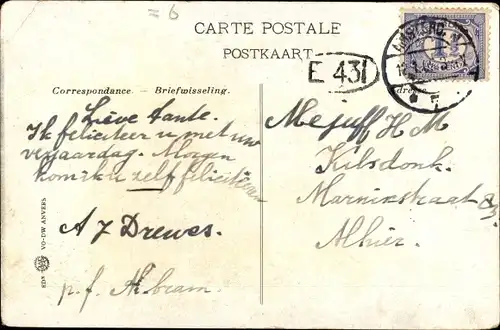 = 6
CARTE POSTALE
POSTKAART
E 431
Correspondance. — Briefwisseling.
Adresse
Lieve tante.
Ik feliciteer u met uw
verjaardag. Morgen
kom ik u zelf feliciteeren
A J Drewes.
p.f. A
Mejuff H M
Kilsdonk.
Marnixstraat
Alhier.
EDN VO-DW ANVERS